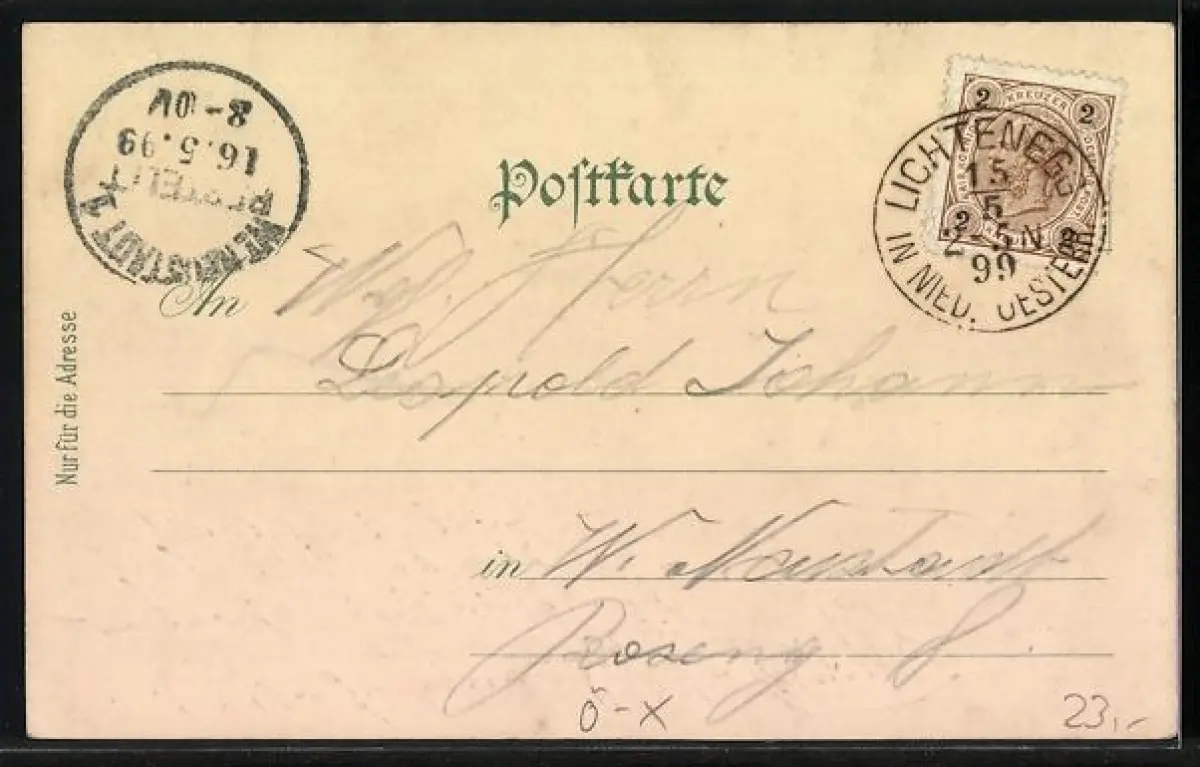 Postkarte
LICHTENEGG
15
5
2-5 N
99
IN NIED. OESTERR.
2 KREUZER 2
2 2
8-10V
16.5.99
BESTELLT
WR. NEUSTADT 1
Nur für die Adresse
An Herrn
Leopold Johann
in W. Neustadt
Roseng. 8.
Ö-X
23,-